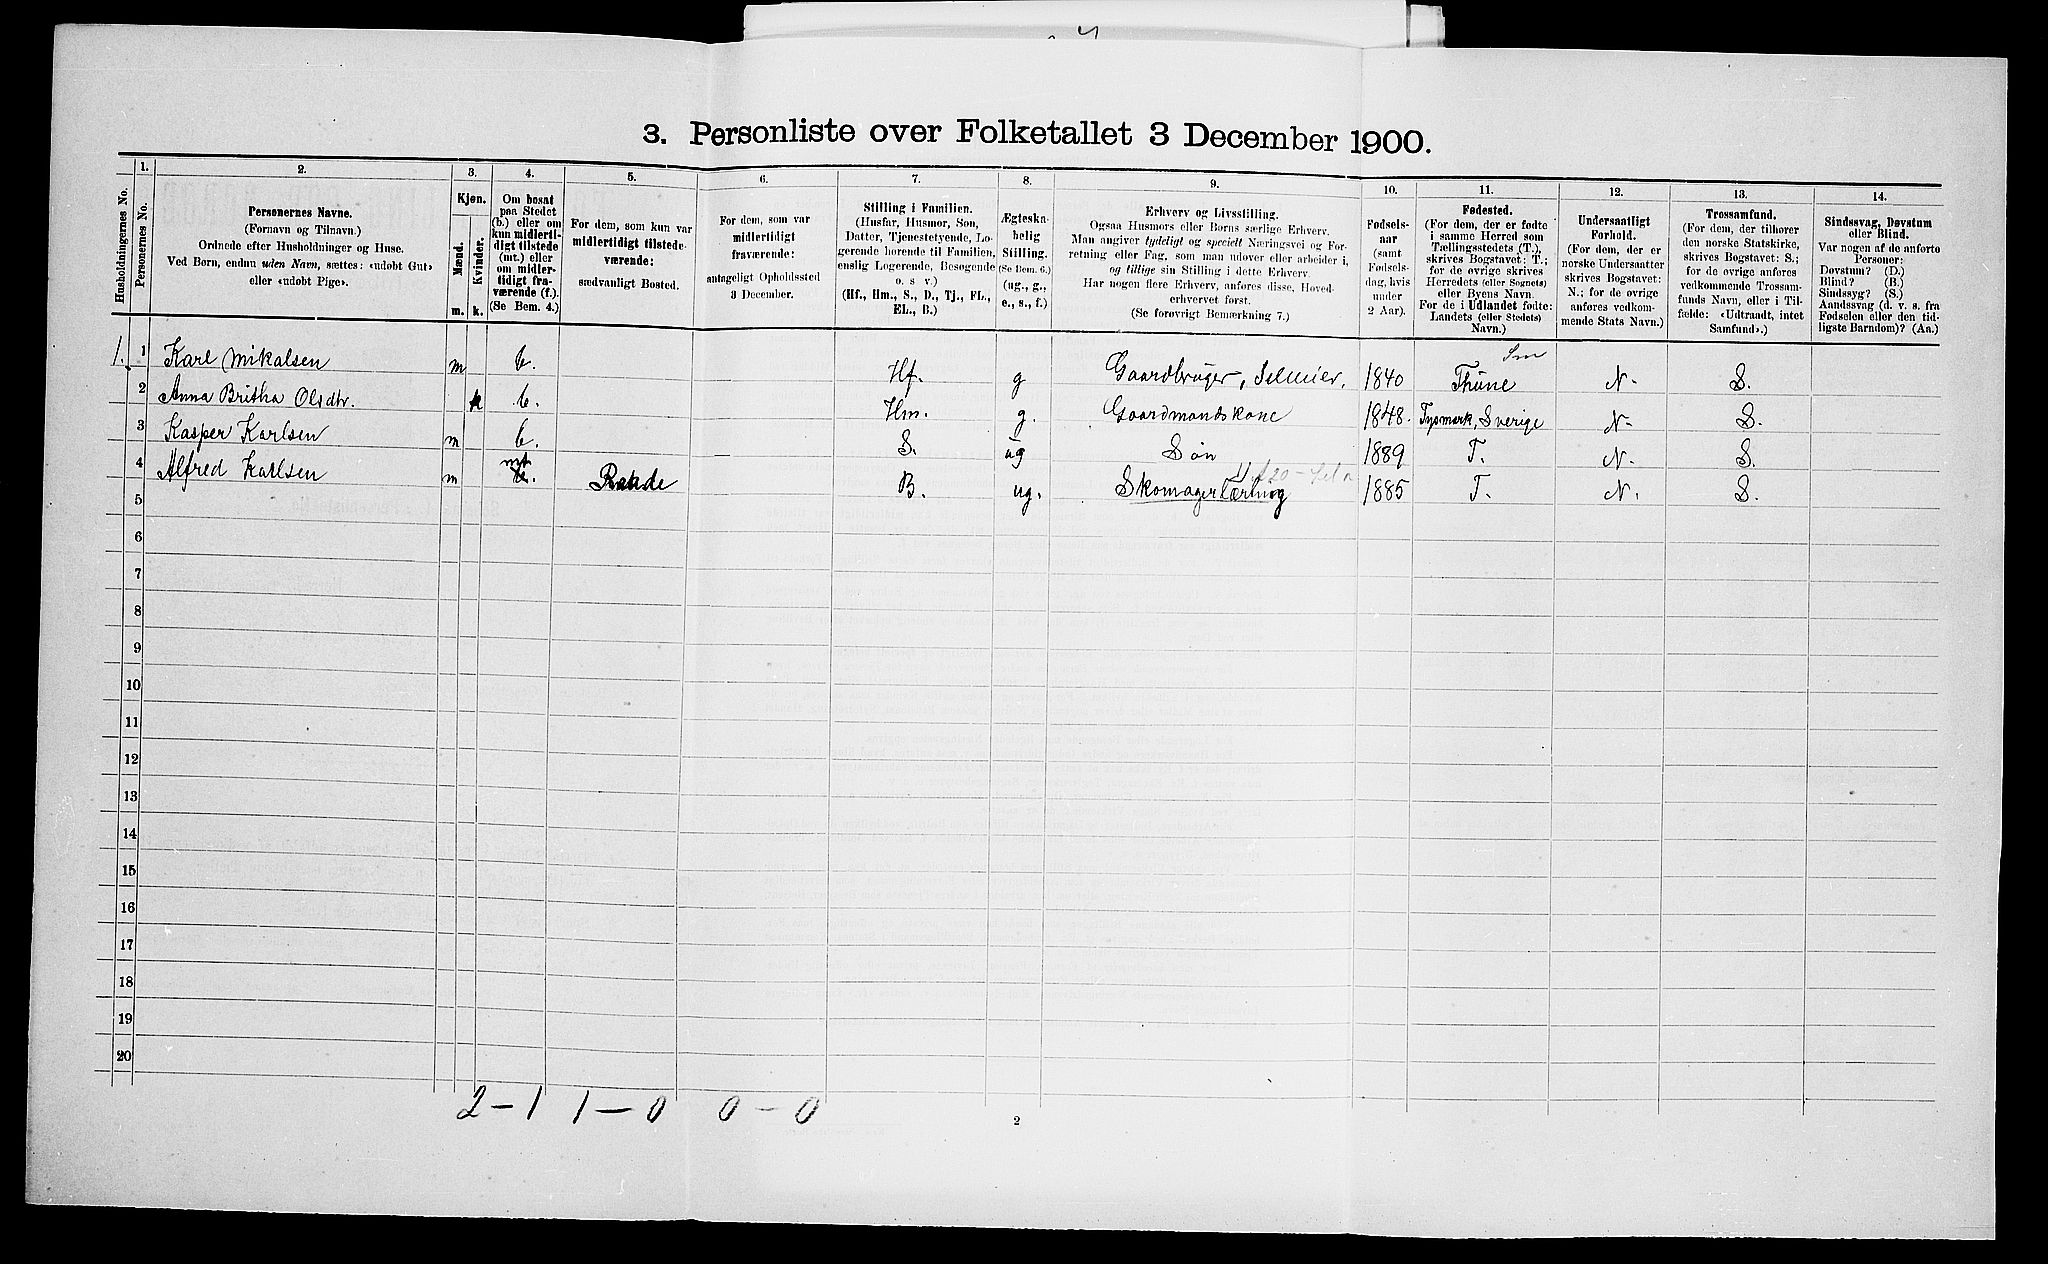 3. Personliste over Folketallet 3 December 1900.
Husholdningernes No.
1.
Personernes No.
2.
Personernes Navne.
(Fornavn og Tilnavn.)
Ordnede efter Husholdninger og Huse.
Ved Børn, endnu uden Navn, sættes: «udøbt Gut»
eller «udøbt Pige».
3.
Kjøn.
Mænd.
Kvinder.
m. k.
4.
Om bosat
paa Stedet
(b.) eller om
kun midlerti-
digt tilstede
(mt.) eller
om midler-
tidigt fra-
værende (f.).
(Se Bem. 4.)
5.
For dem, som kun var
midlertidigt tilstede-
værende:
sædvanligt Bosted.
6.
For dem, som var
midlertidigt
fraværende:
antageligt Opholdssted
3 December.
7.
Stilling i Familien.
(Husfar, Husmor, Søn,
Datter, Tjenestetyende, Lo-
gerende hørende til Familien,
enslig Logerende, Besøgende
o. s v.)
(Hf., Hm., S., D., Tj., FL.,
EL., B.)
8.
Ægteska-
belig
Stilling.
(Se Bem. 6.)
(ug., g.,
e., s., f.)
9.
Erhverv og Livsstilling.
Ogsaa Husmors eller Børns særlige Erhverv.
Man angiver tydeligt og specielt Næringsvei og For-
retning eller Fag, som man udøver eller arbeider i,
og tillige sin Stilling i dette Erhverv.
Har nogen flere Erhverv, anføres disse, Hoved-
erhvervet først.
(Se forøvrigt Bemærkning 7.)
10.
Fødsels-
aar
(samt
Fødsels-
dag, hvis
under
2 Aar).
11.
Fødested.
(For dem, der er fødte
i samme Herred som
Tællingsstedets (T.),
skrives Bogstavet: T.;
for de øvrige skrives
Herredets (eller Sognets)
eller Byens Navn.
For de i Udlandet fødte:
Landets (eller Stedets)
Navn.)
12.
Undersaatligt
Forhold.
(For dem, der er
norske Undersaatter
skrives Bogstavet:
N.; for de øvrige
anføres vedkom-
mende Stats Navn.)
13.
Trossamfund.
(For dem, der tilhører
den norske Statskirke,
skrives Bogstavet: S.;
for de øvrige anføres
vedkommende Trossam-
funds Navn, eller i Til-
fælde: «Udtraadt, intet
Samfund».)
14.
Sindssvag, Døvstum
eller Blind.
Var nogen af de anførte
Personer:
Døvstum? (D.)
Blind? (B.)
Sindssyg? (S.)
Aandssvag (d. v. s. fra
Fødselen eller den tid-
ligste Barndom)? (Aa.)
1. 1 Karl Mikalsen m b. Hf. g Gaardbruger, Selveier. 1840 Thune Sm N. S.
2 Anna Britha Olsdtr. k b. Hm. g. Gaardmandskone 1848. Tysmark, Sverige N. S.
3 Kasper Karlsen m b. S. ug Søn 1889 T. N. S.
4 Alfred Karlsen m mt Raade B. ug. Skomagerlærling 1885 T. N. S.
5
6
7
8
9
10
11
12
13
14
15
16
17
18
19
20
2 - 1 1 - 0 0 - 0
2